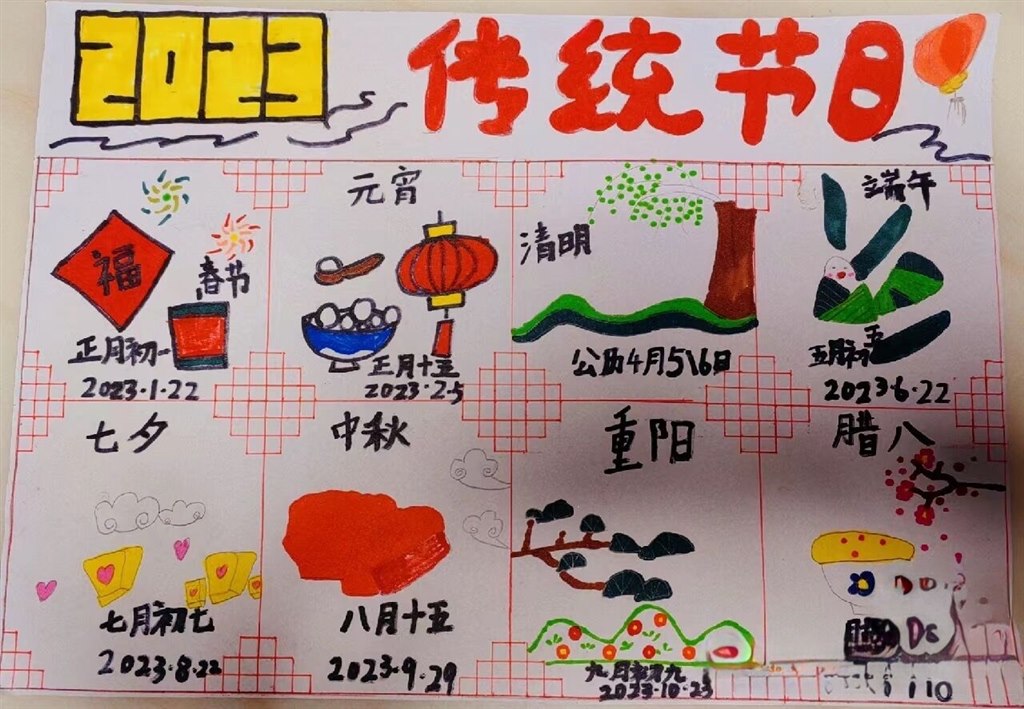 2023 传统节日
福
春节
正月初一
2023.1.22
元宵
正月十五
2023.2.5
清明
公历4月5\6日
端午
五月初五
2023.6.22
七夕
七月初七
2023.8.22
中秋
八月十五
2023.9.29
重阳
九月初九
2023.10.23
腊八